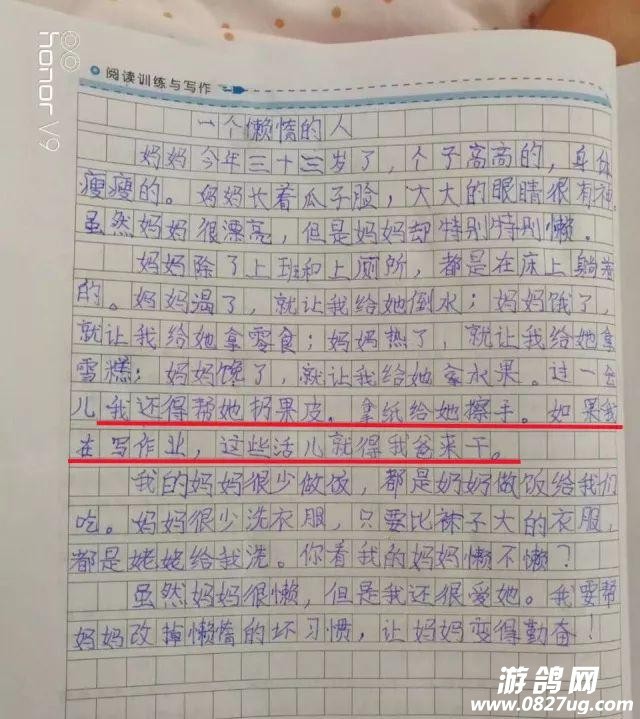 honor V9
阅读训练与写作
一个懒惰的人
妈妈今年三十三岁了，个子高高的，身体
瘦瘦的。妈妈长着瓜子脸，大大的眼睛很有神。
虽然妈妈很漂亮，但是妈妈却特别特别懒。
妈妈除了上班和上厕所，都是在床上躺着
的。妈妈渴了，就让我给她倒水；妈妈饿了，
就让我给她拿零食；妈妈热了，就让我给她拿
雪糕；妈妈馋了，就让我给她拿水果。过一会
儿我还得帮她扔果皮。拿纸给她擦手。如果我
在写作业，这些活儿就得我爸来干。
我的妈妈很少做饭，都是奶奶做饭给我们
吃。妈妈很少洗衣服，只要比袜子大的衣服，
都是姥姥给我洗。你看我的妈妈懒不懒？
虽然妈妈很懒，但是我还很爱她。我要帮
妈妈改掉懒惰的坏习惯，让妈妈变得勤奋！
游鸽网
www.0827ug.com